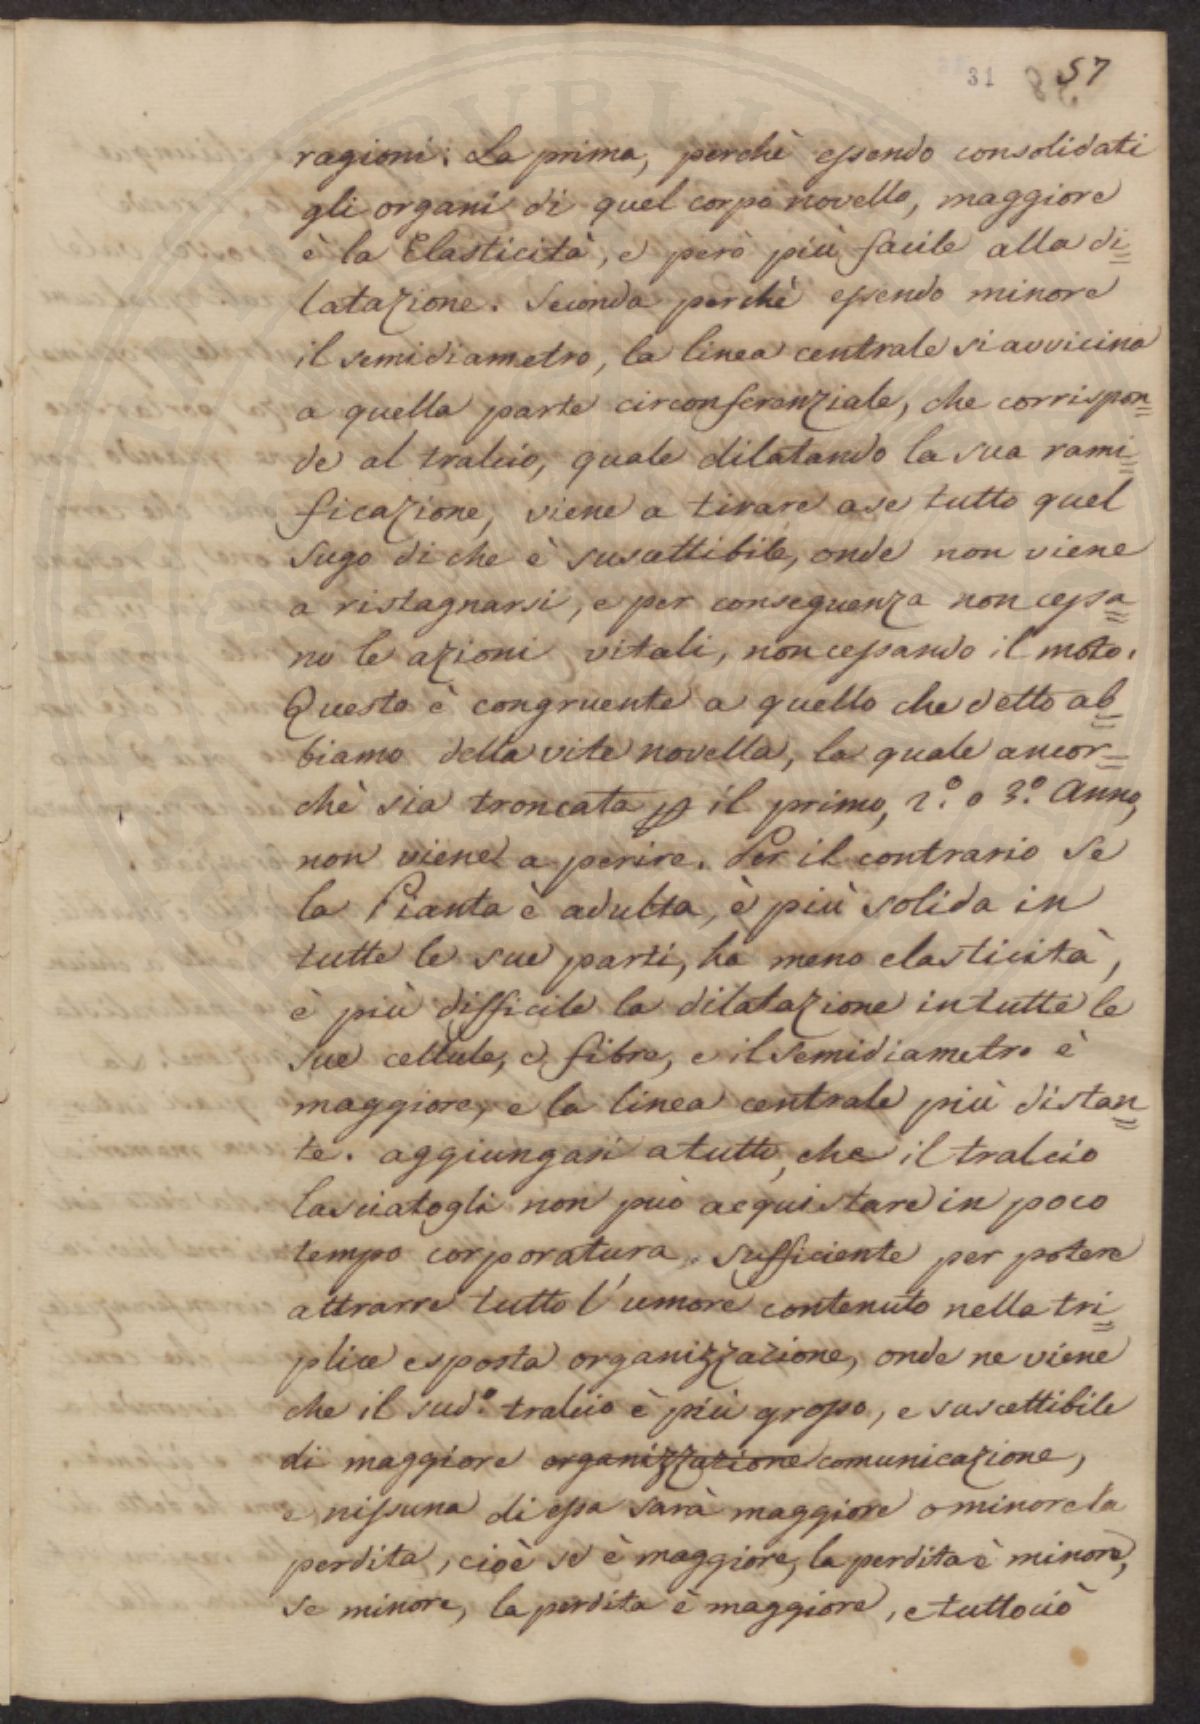 31 57
ragioni: La prima, perchè essendo consolidati
gli organi di quel corpo novello, maggiore
è la Elasticità, e però più facile alla di=
latazione. Seconda perchè essendo minore
il semidiametro, la linea centrale si avvicina
a quella parte circonferenziale, che corrispon=
de al tralcio, quale dilatando la sua rami=
ficazione, viene a tirare a se tutto quel
Sugo di che è suscettibile, onde non viene
a ristagnarsi, e per conseguenza non cessa=
no le azioni vitali, non cessando il moto.
Questo è congruente a quello che detto ab=
biamo della vite novella, la quale ancor=
chè sia troncata p il primo, 2.º o 3.º Anno,
non viene a perire. Per il contrario se
la Pianta è adulta, è più solida in
tutte le sue parti, ha meno elasticità,
è più difficile la dilatazione in tutte le
sue cellule, e fibre, e il semidiametro è
maggiore, e la linea centrale più distan=
te. aggiungasi a tutto, che il tralcio
lasciatogli non può acquistare in poco
tempo corporatura sufficiente per potere
attrarre tutto l'umore contenuto nella tri=
plice esposta organizzazione, onde ne viene
che il sud.º tralcio è più grosso, e suscettibile
di maggiore organizzazione comunicazione,
e nissuna di essa sarà maggiore o minore la
perdita, cioè se è maggiore, la perdita è minore,
se minore, la perdita è maggiore, e tutto ciò